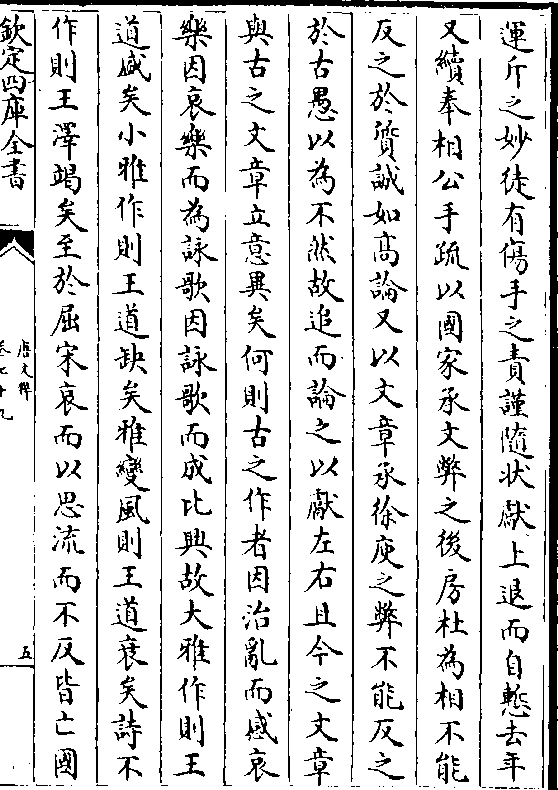 運斤之妙徒有傷手之責謹隨狀獻上退而自慙去年
又續奉相公手疏以國家承文弊之後房杜為相不能
反之於質誠如高論又以文章承徐庾之弊不能反之
於古愚以為不然故追而論之以獻左右且今之文章
與古之文章立意異矣何則古之作者因治亂而感哀
樂因哀樂而為詠歌因詠歌而成比興故大雅作則王
道盛矣小雅作則王道缺矣雅變風則王道衰矣詩不
作則王澤竭矣至於屈宋哀而以思流而不反皆亡國
欽定四庫全書
唐文粹
卷七十九
五